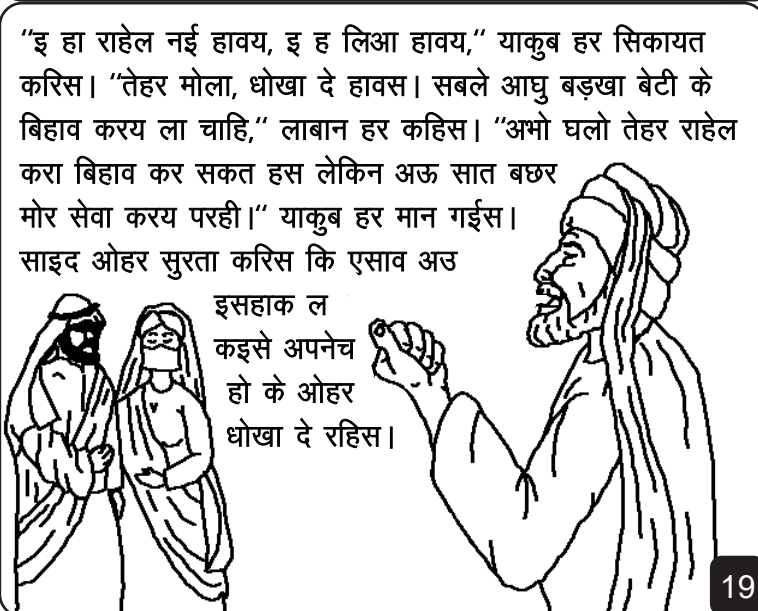 “इ हा राहेल नई हावय, इ ह लिआ हावय,“ याकुब हर सिकायत
करिस। “तेहर मोला, धोखा दे हावस। सबले आघु बड़खा बेटी के
बिहाव करय ला चाहि,“ लाबान हर कहिस। “अभो घलो तेहर राहेल
करा बिहाव कर सकत हस लेकिन अऊ सात बछर
मोर सेवा करय परही।“ याकुब हर मान गईस।
साइद ओहर सुरता करिस कि एसाव अउ
इसहाक ल
कइसे अपनेच
हो के ओहर
धोखा दे रहिस।
19